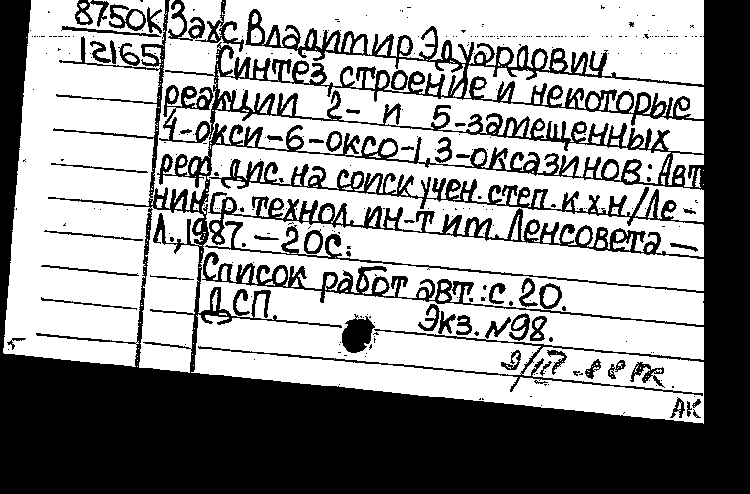 8750к Захс, Владимир Эдуардович.
12165 Синтез, строение и некоторые
реакции 2- и 5-замещенных
4-окси-6-оксо-1,3-оксазинов: Авт
реф. дис. на соиск учен. степ. к.х.н./Ле-
нингр. технол. ин-т им. Ленсовета.—
Л., 1987.—20с.
Список работ авт.: с. 20.
ДСП. Экз. №98.
9/III-88
АК